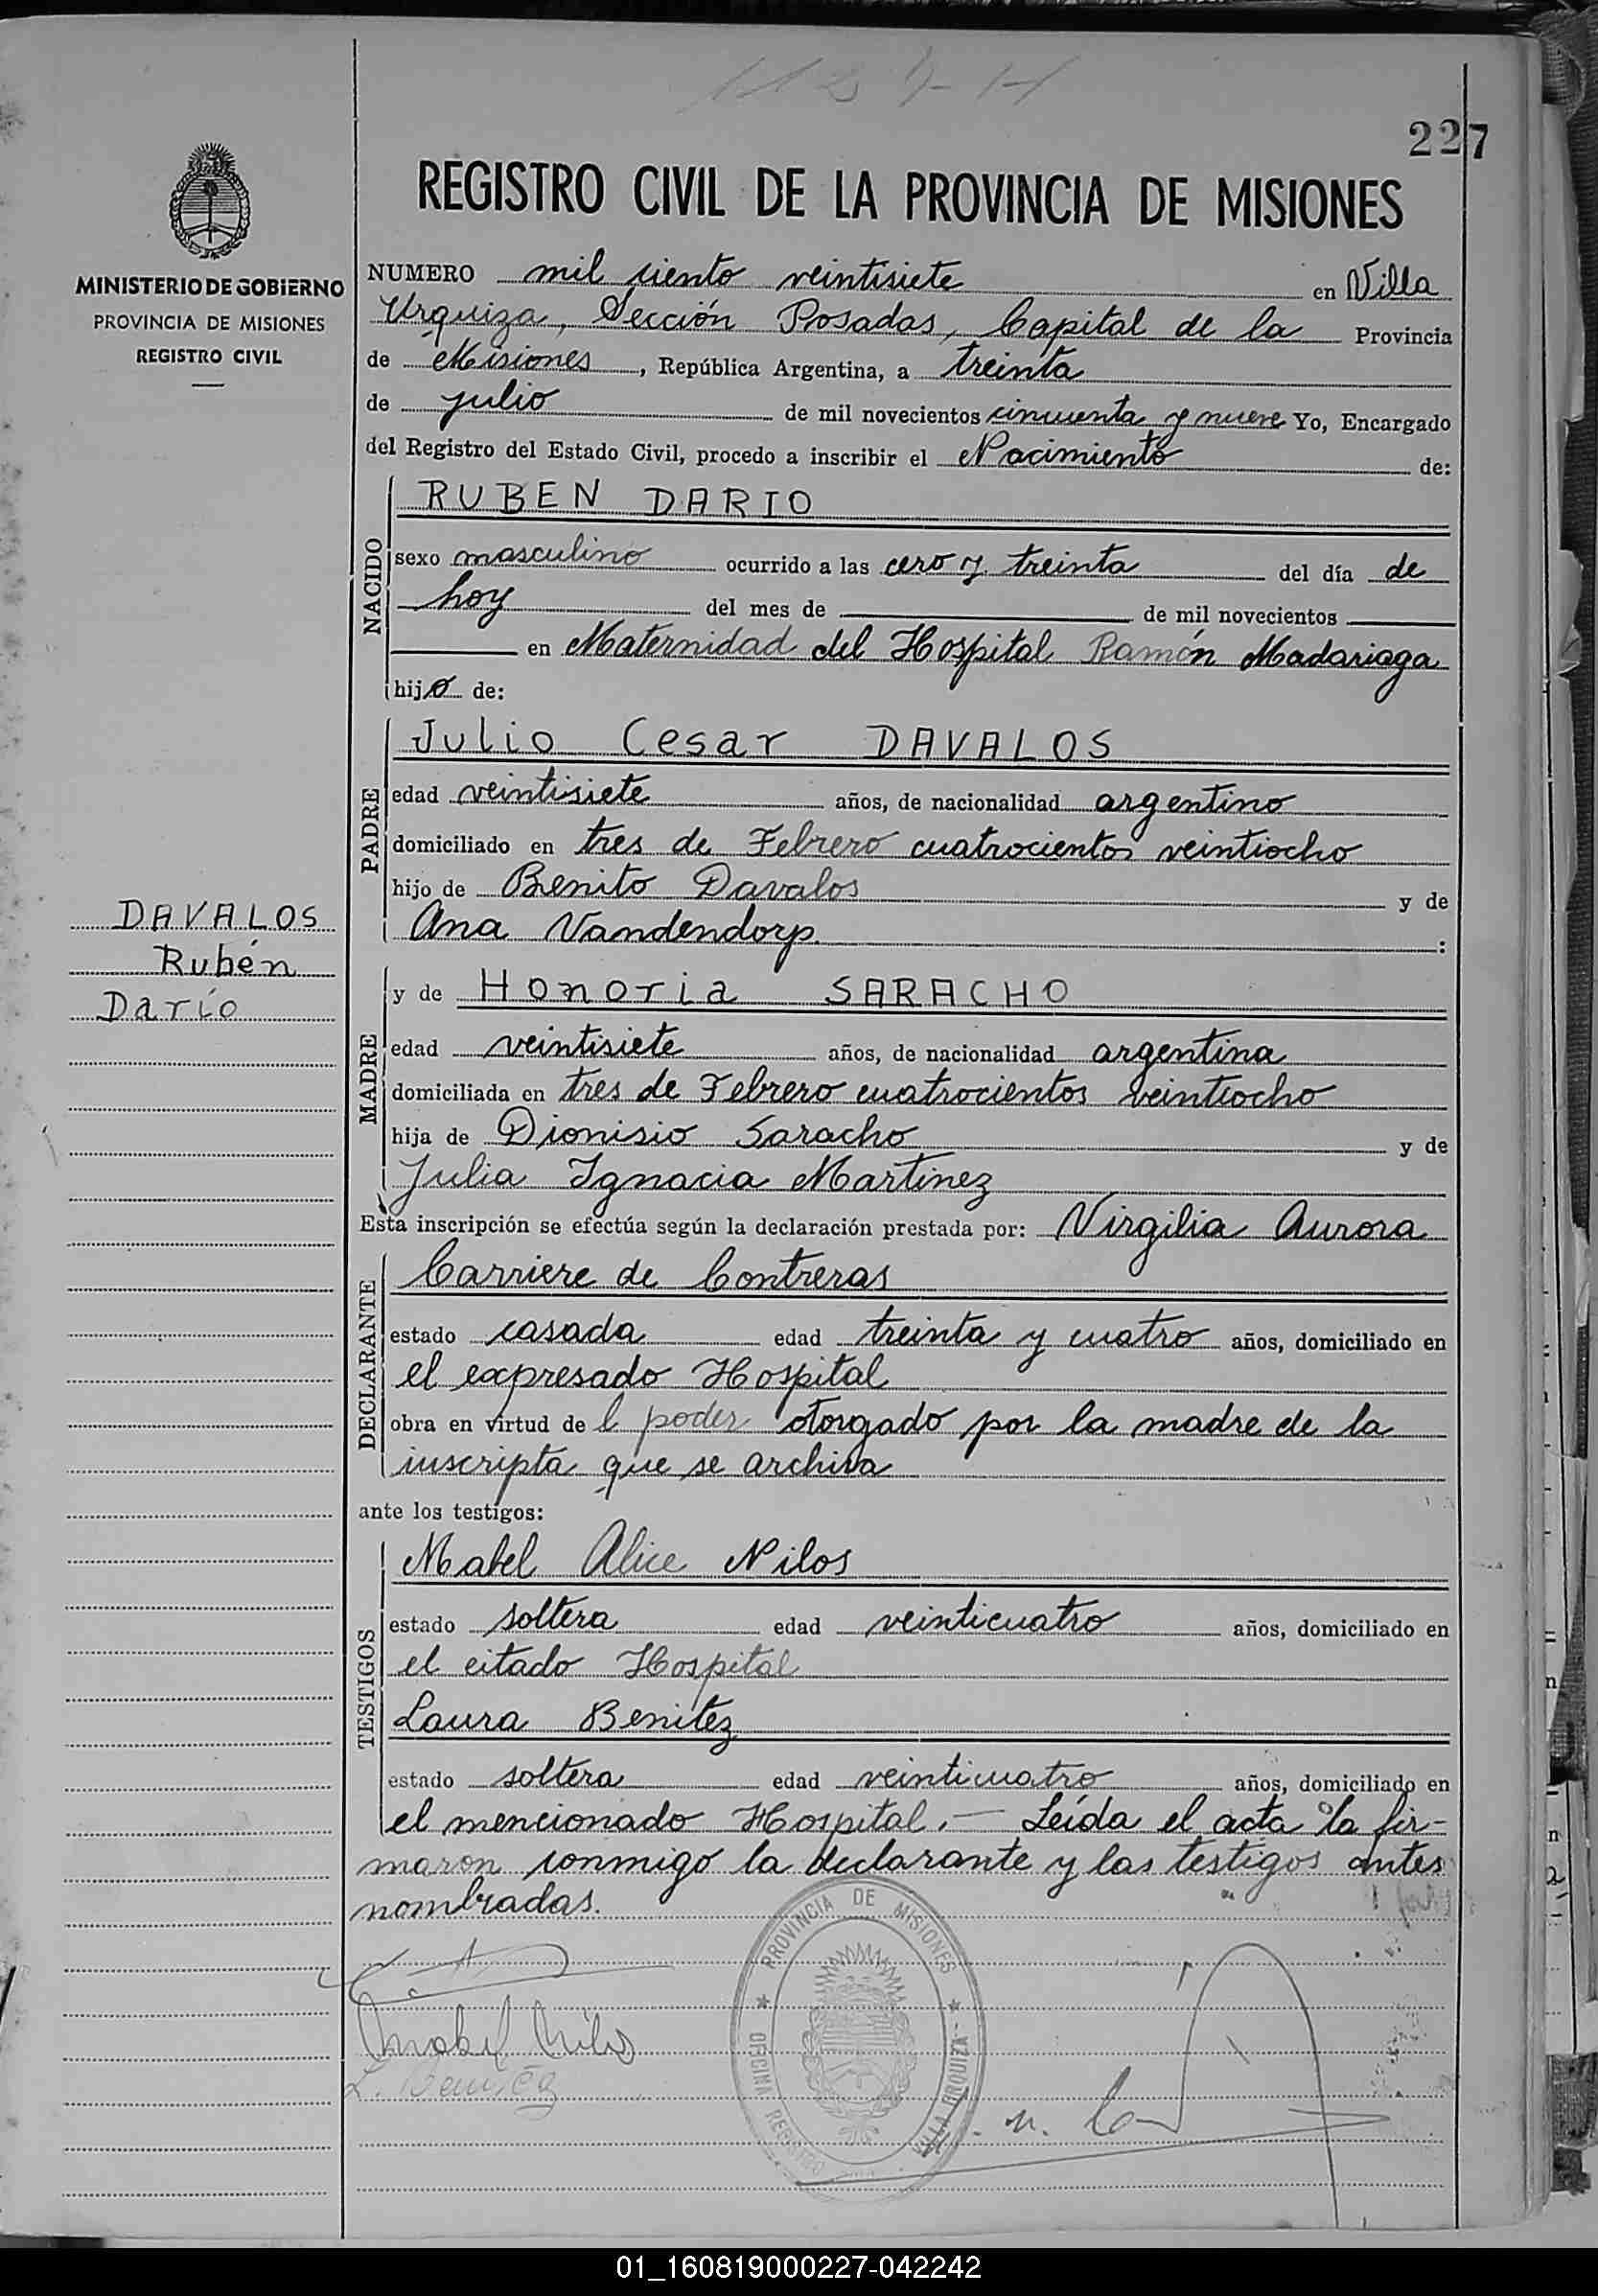 227
REGISTRO CIVIL DE LA PROVINCIA DE MISIONES
MINISTERIO DE GOBIERNO
PROVINCIA DE MISIONES
REGISTRO CIVIL
NUMERO mil ciento veintisiete en Villa
Urquiza, Sección Posadas, Capital de la Provincia
de Misiones, República Argentina, a treinta
de julio de mil novecientos cincuenta y nueve Yo, Encargado
del Registro del Estado Civil, procedo a inscribir el Nacimiento de:
NACIDO
RUBEN DARIO
sexo masculino ocurrido a las cero y treinta del día de
hoy del mes de de mil novecientos
en Maternidad del Hospital Ramón Madariaga
hijo de:
PADRE
Julio Cesar DAVALOS
edad veintisiete años, de nacionalidad argentino
domiciliado en tres de Febrero cuatrocientos veintiocho
hijo de Benito Davalos y de
Ana Vandendorp :
DAVALOS
Rubén
Darío
MADRE
y de Honoria SARACHO
edad veintisiete años, de nacionalidad argentina
domiciliada en tres de Febrero cuatrocientos veintiocho
hija de Dionisio Saracho y de
Julia Ignacia Martinez
Esta inscripción se efectúa según la declaración prestada por: Virgilia Aurora
DECLARANTE
Carriere de Contreras
estado casada edad treinta y cuatro años, domiciliado en
el expresado Hospital
obra en virtud de l poder otorgado por la madre de la
inscripta que se archiva
ante los testigos:
TESTIGOS
Mabel Alice Nilos
estado soltera edad veinticuatro años, domiciliado en
el citado Hospital
Laura Benitez
estado soltera edad veinticuatro años, domiciliado en
el mencionado Hospital.— Leída el acta la fir-
maron conmigo la declarante y las testigos antes
nombradas.
PROVINCIA DE MISIONES
OFICINA REGISTRO VILLA URQUIZA
Mabel Nilos
L. Benitez
01_160819000227-042242